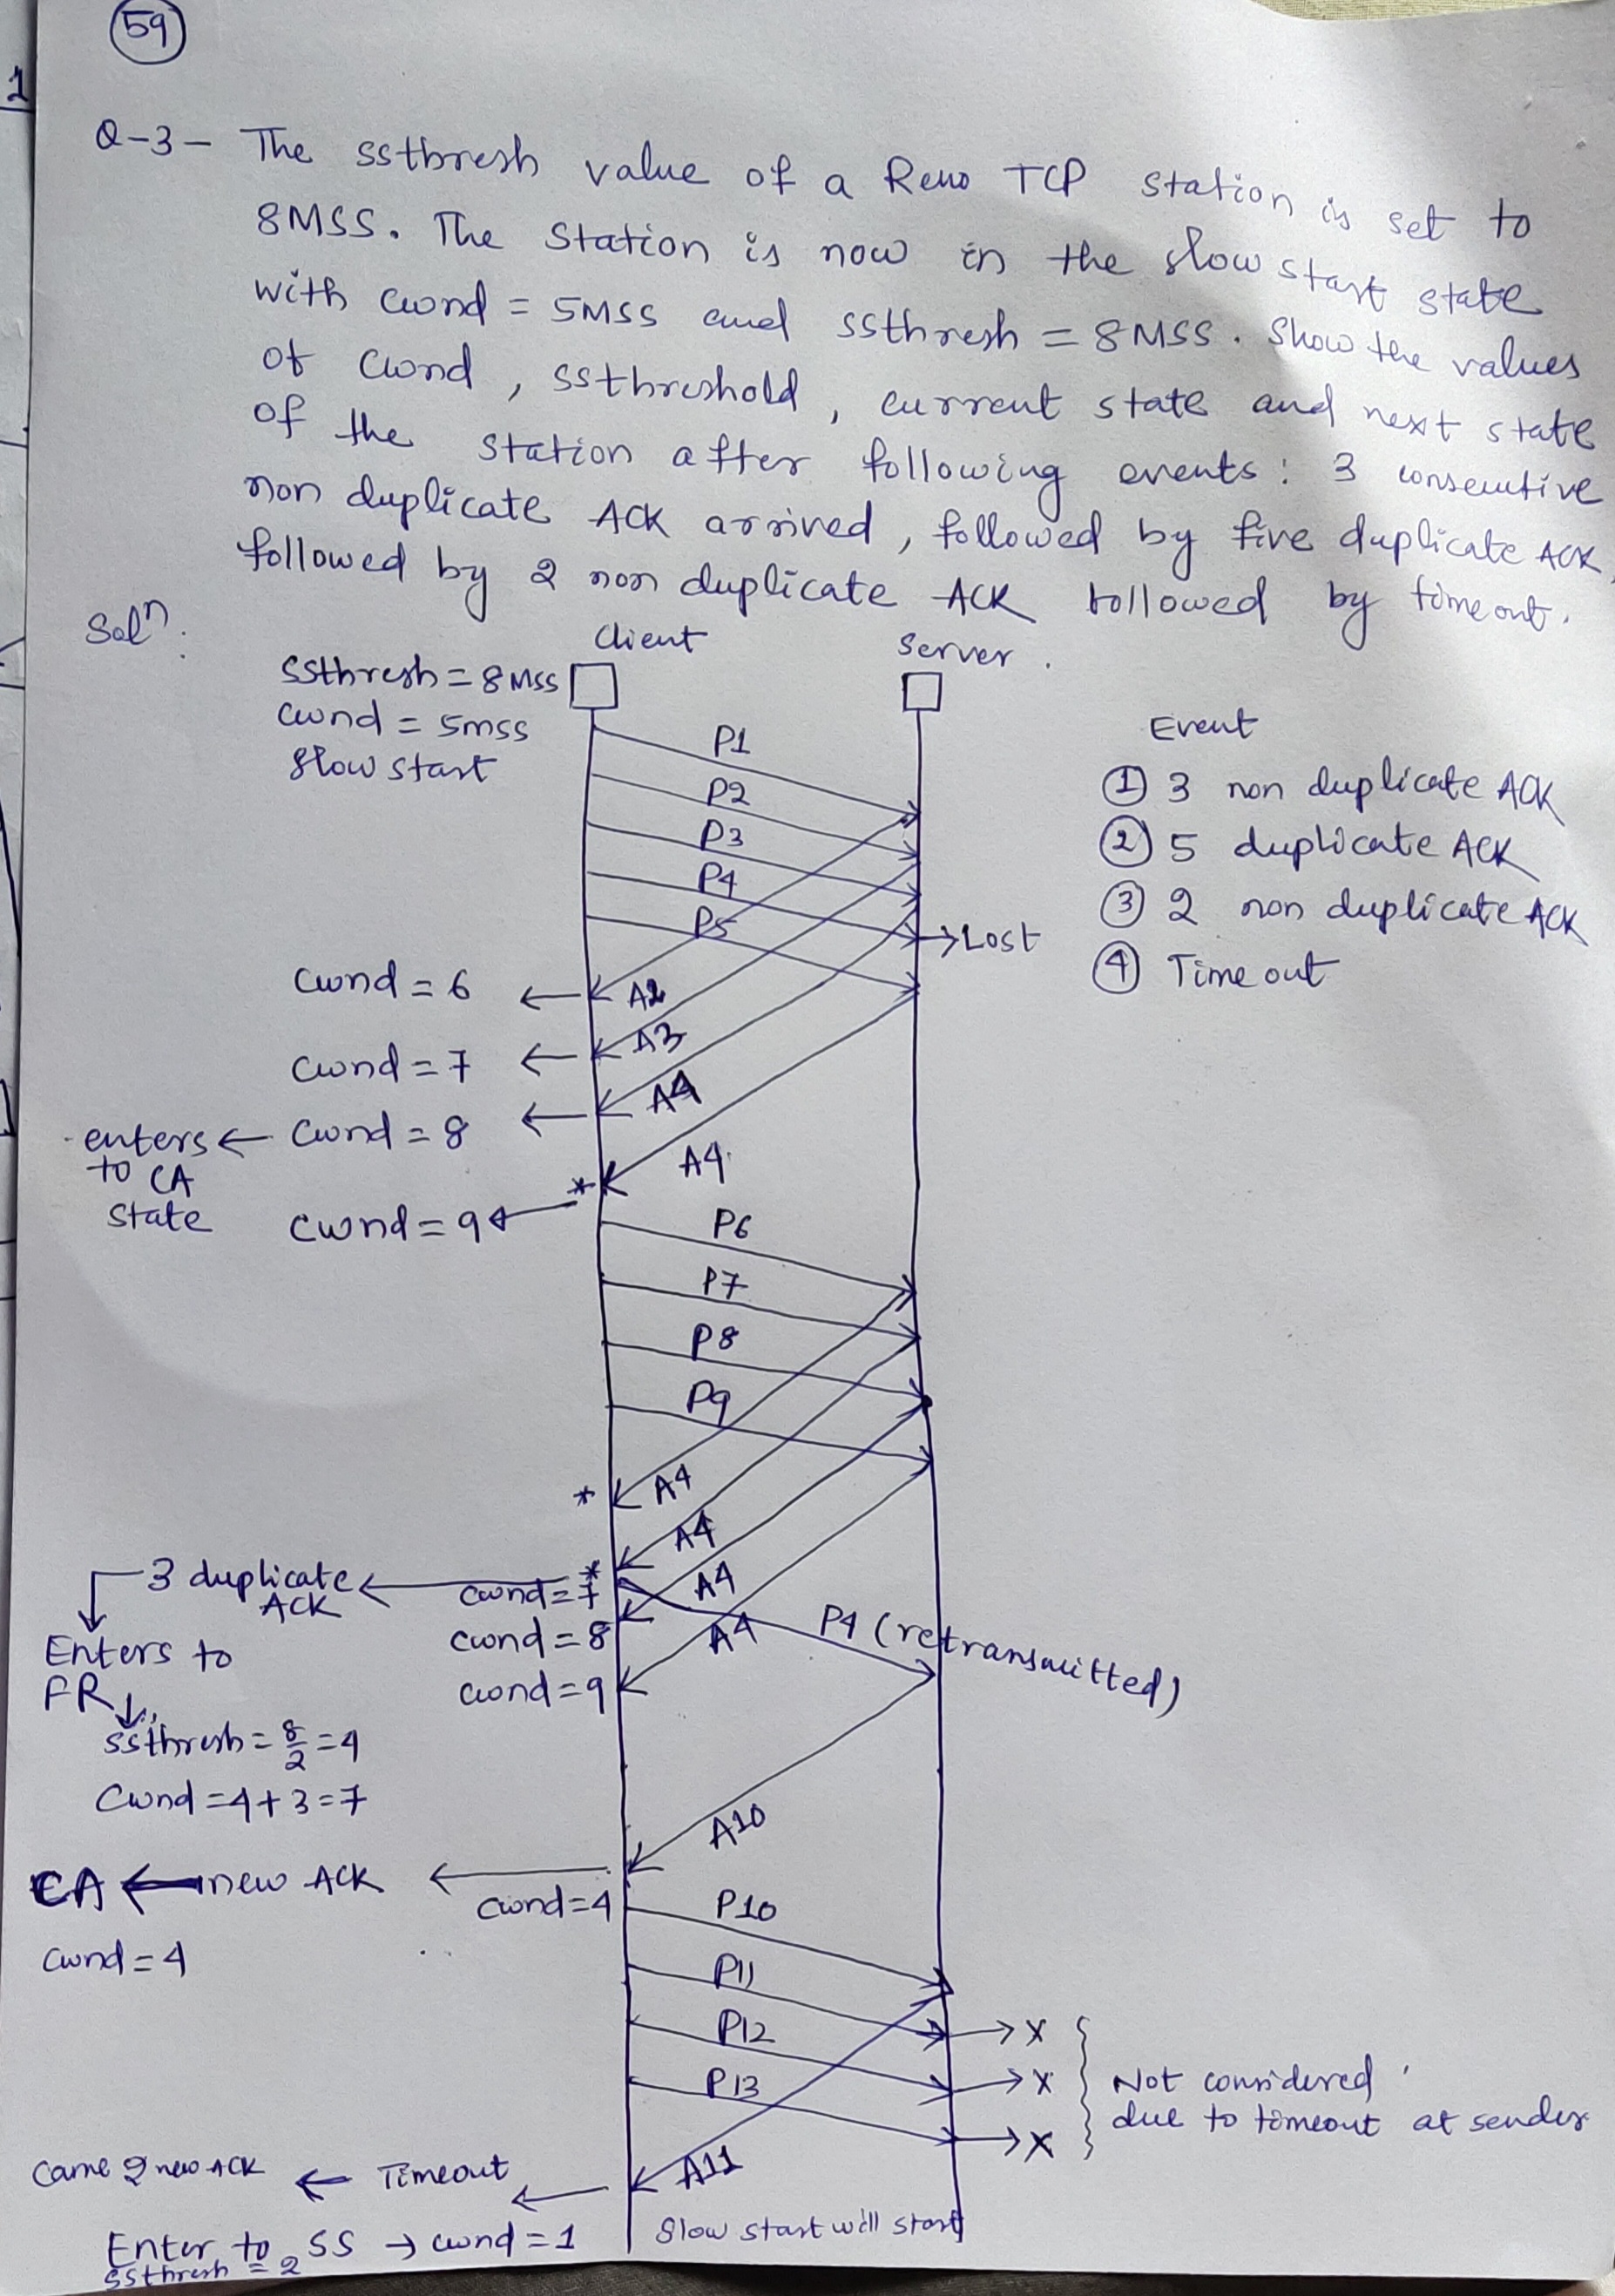 59
1
Q-3- The sstbresh value of a Reno TCP station is set to
8MSS. The station is now in the slow start state
with cwnd = 5MSS and ssthresh = 8MSS. Show the values
of cwnd, ssthreshold, current state and next state
of the station after following events: 3 consecutive
non duplicate ACK arrived, followed by five duplicate ACK,
followed by 2 non duplicate ACK followed by time out.
Solⁿ:
Client
Server.
ssthresh = 8 MSS
cwnd = 5mss
slow start
Event
① 3 non duplicate ACK
② 5 duplicate ACK
③ 2 non duplicate ACK
④ Time out
P1
P2
P3
P4
P5
→Lost
cwnd = 6 ← A2
cwnd = 7 ← A3
enters ← cwnd = 8 ← A4
to CA
state
* A4
cwnd = 9
P6
P7
P8
P9
* A4
* A4
3 duplicate
ACK
cwnd = 7
A4
cwnd = 8
A4
cwnd = 9
P4 (retransmitted)
Enters to
FR
ssthresh = 8/2 = 4
cwnd = 4 + 3 = 7
A10
CA ← new ACK
cwnd = 4
cwnd = 4
P10
P11
P12
P13
→ X
→ X
→ X
Not considered
due to timeout at sender
A11
Came 2 new ACK ← Timeout
Enter to SS → cwnd = 1
ssthresh = 2
Slow start will start